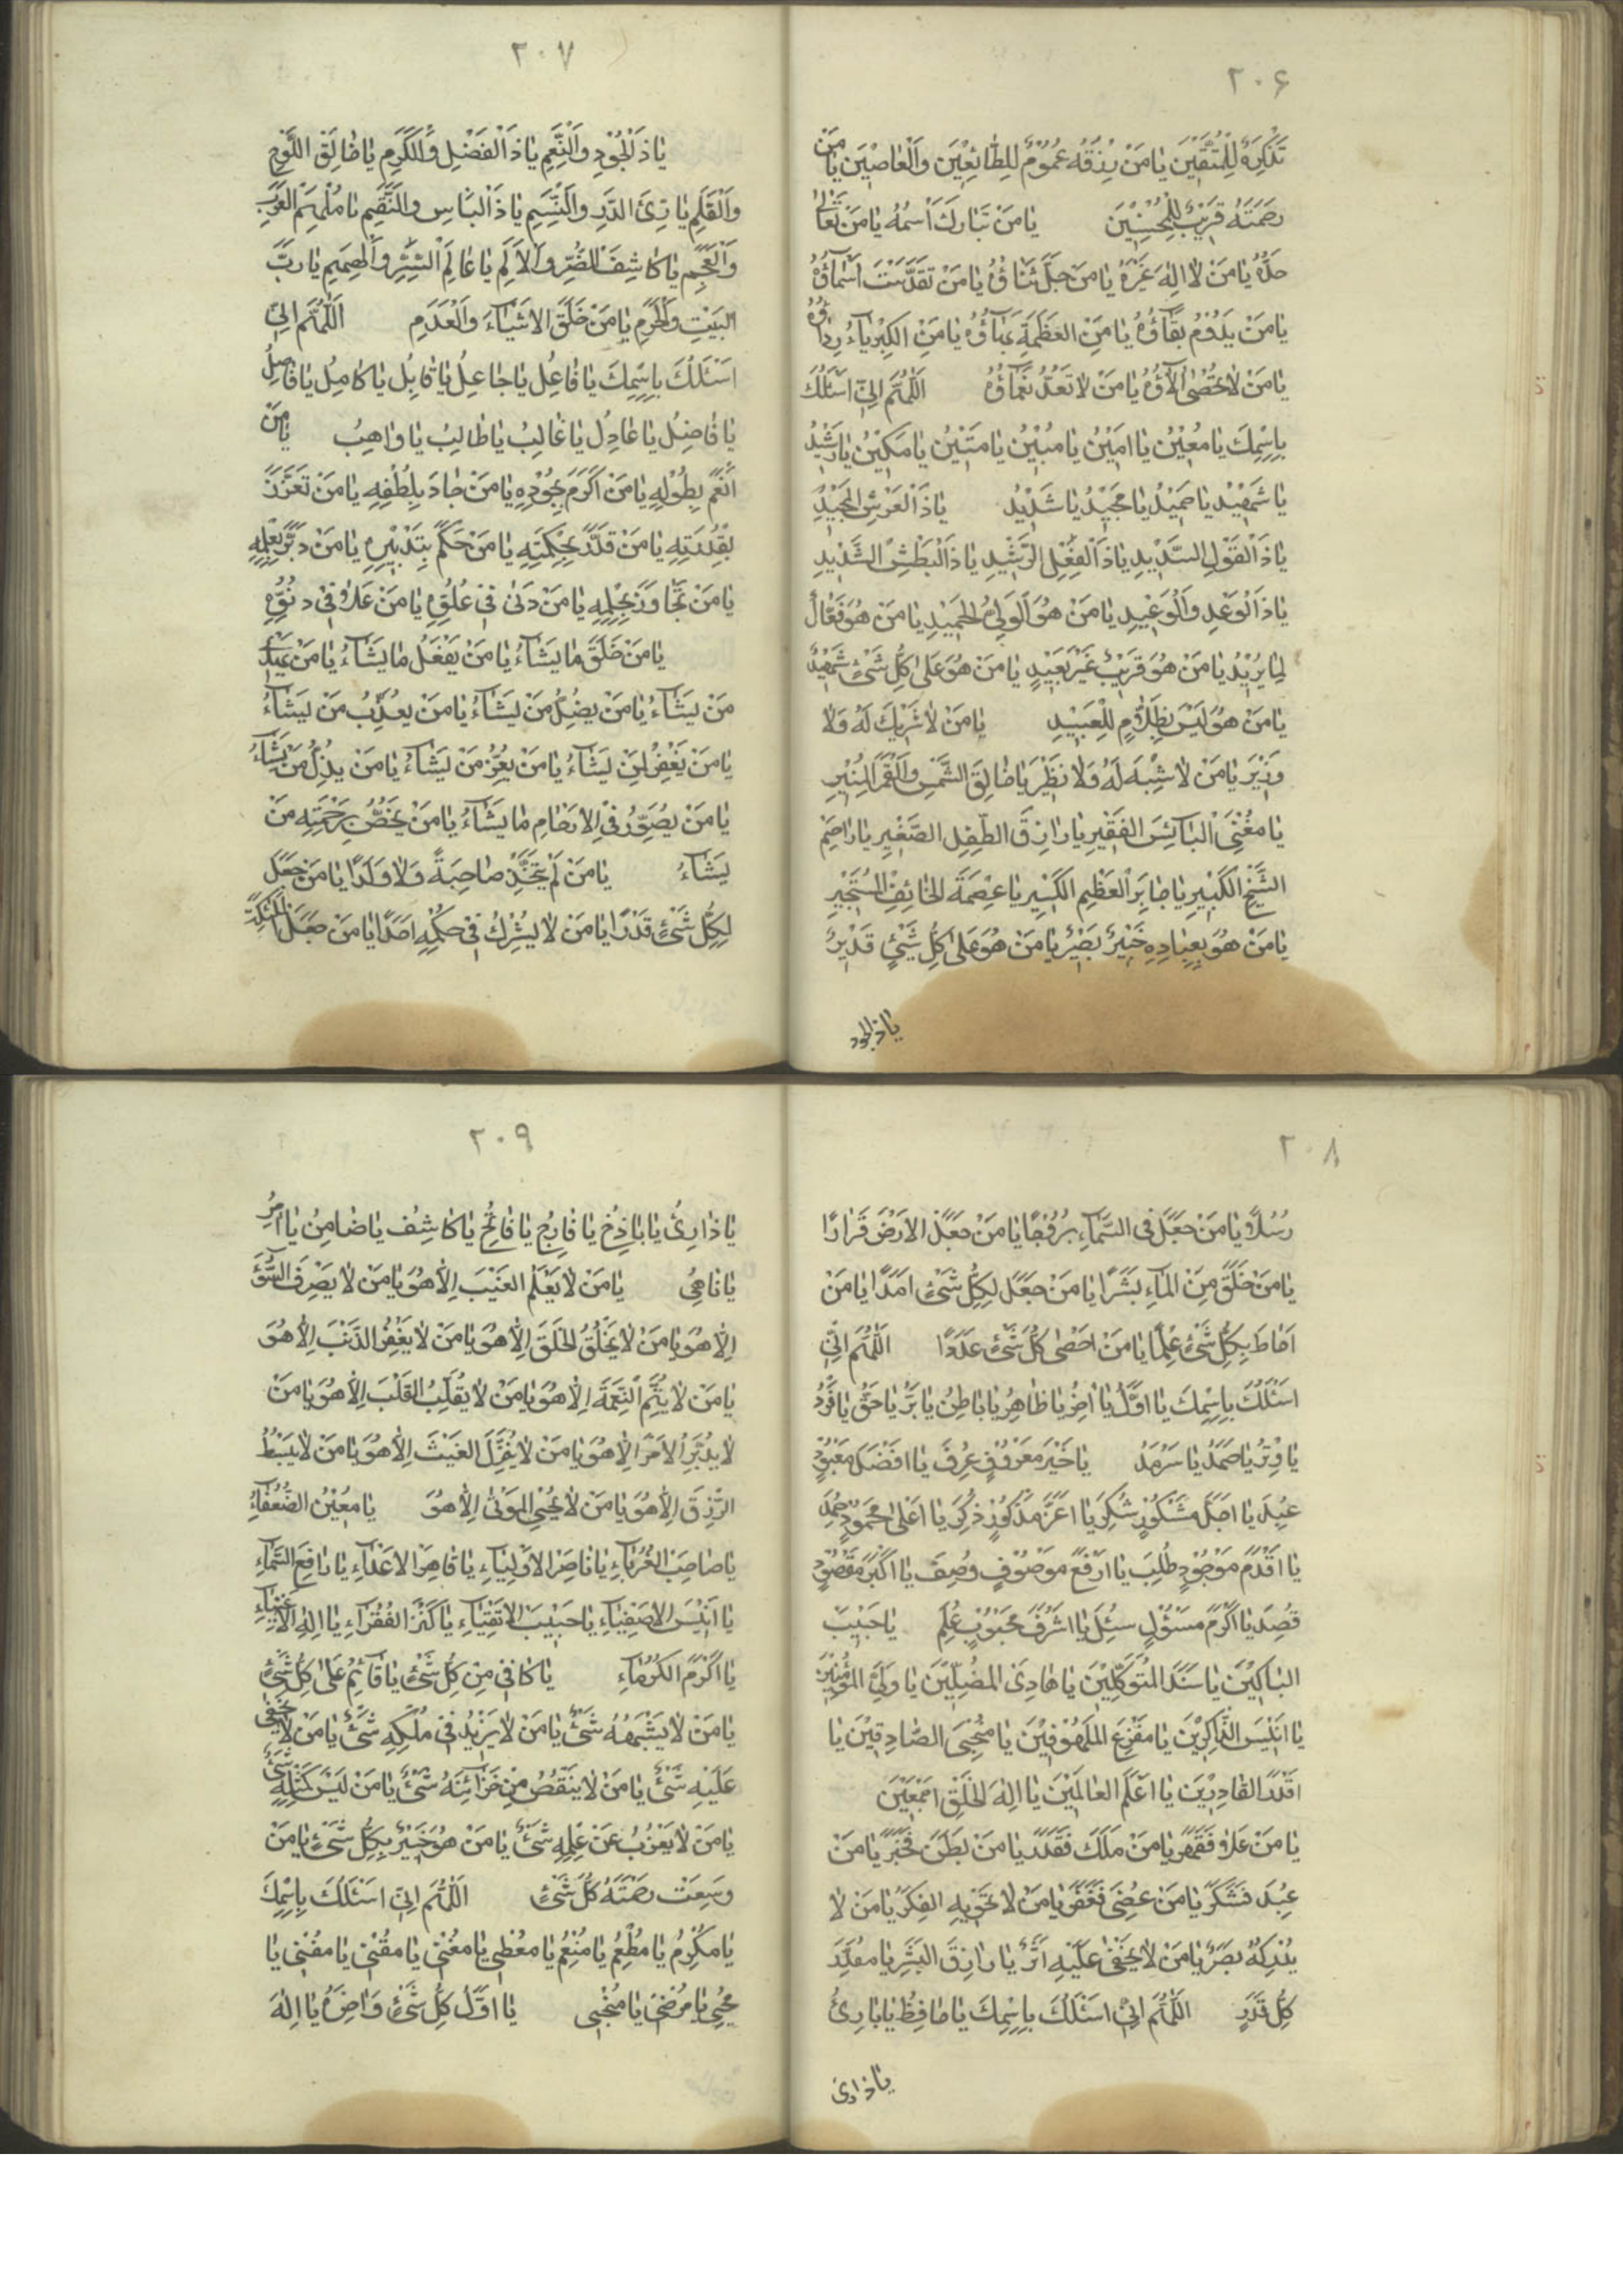 ٢٠۶
تَذْكِرَةٌ لِلْمُتَّقِيْنَ يَا مَنْ رِزْقُهُ عُمُوْمٌ لِلطَّائِعِيْنَ وَالْعَاصِيْنَ يَا مَنْ
رَحْمَتُهُ قَرِيْبٌ لِلْمُحْسِنِيْنَ يَا مَنْ تَبَارَكَ اسْمُهُ يَا مَنْ تَعَالٰى
جَدُّهُ يَا مَنْ لَا اِلٰهَ غَيْرُهُ يَا مَنْ جَلَّ ثَنَاؤُهُ يَا مَنْ تَقَدَّسَتْ اَسْمَاؤُهُ
يَا مَنْ يَدُوْمُ بَقَاؤُهُ يَا مَنِ الْعَظَمَةُ بَهَاؤُهُ يَا مَنِ الْكِبْرِيَاءُ رِدَاؤُهُ
يَا مَنْ لَا تُحْصٰى اٰلَاؤُهُ يَا مَنْ لَا تُعَدُّ نَعْمَاؤُهُ اَللّٰهُمَّ اِنِّي اَسْئَلُكَ
بِاِسْمِكَ يَا مُعِيْنُ يَا اَمِيْنُ يَا مُبِيْنُ يَا مَتِيْنُ يَا مَكِيْنُ يَا رَشِيْدُ
يَا شَهِيْدُ يَا حَمِيْدُ يَا مَجِيْدُ يَا شَدِيْدُ يَا ذَا الْعَرْشِ الْمَجِيْدِ
يَا ذَا الْقَوْلِ السَّدِيْدِ يَا ذَا الْفِعْلِ الرَّشِيْدِ يَا ذَا الْبَطْشِ الشَّدِيْدِ
يَا ذَا الْوَعْدِ وَالْوَعِيْدِ يَا مَنْ هُوَ الْوَلِيُّ الْحَمِيْدُ يَا مَنْ هُوَ فَعَّالٌ
لِمَا يُرِيْدُ يَا مَنْ هُوَ قَرِيْبٌ غَيْرُ بَعِيْدٍ يَا مَنْ هُوَ عَلٰى كُلِّ شَيْءٍ شَهِيْدٌ
يَا مَنْ هُوَ لَيْسَ بِظَلَّامٍ لِلْعَبِيْدِ يَا مَنْ لَا شَرِيْكَ لَهُ وَلَا
وَزِيْرَ يَا مَنْ لَا شَبِيْهَ لَهُ وَلَا نَظِيْرَ يَا خَالِقَ الشَّمْسِ وَالْقَمَرِ الْمُنِيْرِ
يَا مُغْنِيَ الْبَائِسِ الْفَقِيْرِ يَا رَازِقَ الطِّفْلِ الصَّغِيْرِ يَا رَاحِمَ
الشَّيْخِ الْكَبِيْرِ يَا جَابِرَ الْعَظْمِ الْكَسِيْرِ يَا عِصْمَةَ الْخَائِفِ الْمُسْتَجِيْرِ
يَا مَنْ هُوَ بِعِبَادِهِ خَبِيْرٌ بَصِيْرٌ يَا مَنْ هُوَ عَلٰى كُلِّ شَيْءٍ قَدِيْرٌ
يا ذا الجود
٢٠٧
يَا ذَا الْجُوْدِ وَالنِّعَمِ يَا ذَا الْفَضْلِ وَالْكَرَمِ يَا خَالِقَ اللَّوْحِ
وَالْقَلَمِ يَا بَارِئَ الذَّرِّ وَالنَّسَمِ يَا ذَا الْبَأْسِ وَالنِّقَمِ يَا مُلْهِمَ الْعَرَبِ
وَالْعَجَمِ يَا كَاشِفَ الضُّرِّ وَالْاَلَمِ يَا عَالِمَ السِّرِّ وَالْهِمَمِ يَا رَبَّ
الْبَيْتِ وَالْحَرَمِ يَا مَنْ خَلَقَ الْاَشْيَاءَ وَالْعَدَمِ اَللّٰهُمَّ اِنِّي
اَسْئَلُكَ بِاِسْمِكَ يَا فَاعِلُ يَا جَاعِلُ يَا قَابِلُ يَا كَامِلُ يَا فَاصِلُ
يَا فَاضِلُ يَا عَادِلُ يَا غَالِبُ يَا طَالِبُ يَا وَاهِبُ يَا مَنْ
اَنْعَمَ بِطَوْلِهِ يَا مَنْ اَكْرَمَ بِجُوْدِهِ يَا مَنْ جَادَ بِلُطْفِهِ يَا مَنْ تَعَزَّزَ
بِقُدْرَتِهِ يَا مَنْ قَدَّرَ بِحِكْمَتِهِ يَا مَنْ حَكَمَ بِتَدْبِيْرِهِ يَا مَنْ دَبَّرَ بِعِلْمِهِ
يَا مَنْ تَجَاوَزَ بِحِلْمِهِ يَا مَنْ دَنٰى فِي عُلُوِّهِ يَا مَنْ عَلَا فِي دُنُوِّهِ
يَا مَنْ خَلَقَ مَا يَشَاءُ يَا مَنْ يَفْعَلُ مَا يَشَاءُ يَا مَنْ يَهْدِي
مَنْ يَشَاءُ يَا مَنْ يُضِلُّ مَنْ يَشَاءُ يَا مَنْ يُعَذِّبُ مَنْ يَشَاءُ
يَا مَنْ يَغْفِرُ لِمَنْ يَشَاءُ يَا مَنْ يُعِزُّ مَنْ يَشَاءُ يَا مَنْ يُذِلُّ مَنْ يَشَاءُ
يَا مَنْ يُصَوِّرُ فِي الْاَرْحَامِ مَا يَشَاءُ يَا مَنْ يَخْتَصُّ بِرَحْمَتِهِ مَنْ
يَشَاءُ يَا مَنْ لَمْ يَتَّخِذْ صَاحِبَةً وَلَا وَلَدًا يَا مَنْ جَعَلَ
لِكُلِّ شَيْءٍ قَدْرًا يَا مَنْ لَا يُشْرِكُ فِي حُكْمِهِ اَحَدًا يَا مَنْ جَعَلَ الْمَلٰئِكَةَ
٢٠٨
رُسُلًا يَا مَنْ جَعَلَ فِي السَّمَاءِ بُرُوْجًا يَا مَنْ جَعَلَ الْاَرْضَ قَرَارًا
يَا مَنْ خَلَقَ مِنَ الْمَاءِ بَشَرًا يَا مَنْ جَعَلَ لِكُلِّ شَيْءٍ اَمَدًا يَا مَنْ
اَحَاطَ بِكُلِّ شَيْءٍ عِلْمًا يَا مَنْ اَحْصٰى كُلَّ شَيْءٍ عَدَدًا اَللّٰهُمَّ اِنِّي
اَسْئَلُكَ بِاِسْمِكَ يَا اَوَّلُ يَا اٰخِرُ يَا ظَاهِرُ يَا بَاطِنُ يَا بَرُّ يَا حَقُّ يَا فَرْدُ
يَا وِتْرُ يَا صَمَدُ يَا سَرْمَدُ يَا خَيْرَ مَعْرُوْفٍ عُرِفَ يَا اَفْضَلَ مَعْبُوْدٍ
عُبِدَ يَا اَجَلَّ مَشْكُوْرٍ شُكِرَ يَا اَعَزَّ مَذْكُوْرٍ ذُكِرَ يَا اَعْلٰى مَحْمُوْدٍ حُمِدَ
يَا اَقْدَمَ مَوْجُوْدٍ طُلِبَ يَا اَرْفَعَ مَوْصُوْفٍ وُصِفَ يَا اَكْبَرَ مَقْصُوْدٍ
قُصِدَ يَا اَكْرَمَ مَسْؤُلٍ سُئِلَ يَا اَشْرَفَ مَحْبُوْبٍ عُلِمَ يَا حَبِيْبَ
الْبَاكِيْنَ يَا سَنَدَ الْمُتَوَكِّلِيْنَ يَا هَادِيَ الْمُضِلِّيْنَ يَا وَلِيَّ الْمُؤْمِنِيْنَ
يَا اَنِيْسَ الذَّاكِرِيْنَ يَا مَفْزَعَ الْمَلْهُوْفِيْنَ يَا مُنْجِيَ الصَّادِقِيْنَ يَا
اَقْدَرَ الْقَادِرِيْنَ يَا اَعْلَمَ الْعَالَمِيْنَ يَا اِلٰهَ الْخَلْقِ اَجْمَعِيْنَ
يَا مَنْ عَلَا فَقَهَرَ يَا مَنْ مَلَكَ فَقَدَرَ يَا مَنْ بَطَنَ فَخَبَرَ يَا مَنْ
عُبِدَ فَشَكَرَ يَا مَنْ عُصِيَ فَغَفَرَ يَا مَنْ لَا تَحْوِيْهِ الْفِكَرُ يَا مَنْ لَا
يُدْرِكُهُ بَصَرٌ يَا مَنْ لَا يَخْفٰى عَلَيْهِ اَثَرٌ يَا رَازِقَ الْبَشَرِ يَا مُقَدِّرَ
كُلِّ قَدَرٍ اَللّٰهُمَّ اِنِّي اَسْئَلُكَ بِاِسْمِكَ يَا حَافِظُ يَا بَارِئُ
يا ذارئ
٢٠٩
يَا ذَارِئُ يَا بَاذِخُ يَا فَارِجُ يَا فَاتِحُ يَا كَاشِفُ يَا ضَامِنُ يَا اٰمِرُ
يَا نَاهِيُ يَا مَنْ لَا يَعْلَمُ الْغَيْبَ اِلَّا هُوَ يَا مَنْ لَا يَصْرِفُ السُّوْءَ
اِلَّا هُوَ يَا مَنْ لَا يَخْلُقُ الْخَلْقَ اِلَّا هُوَ يَا مَنْ لَا يَغْفِرُ الذَّنْبَ اِلَّا هُوَ
يَا مَنْ لَا يُتِمُّ النِّعْمَةَ اِلَّا هُوَ يَا مَنْ لَا يُقَلِّبُ الْقَلْبَ اِلَّا هُوَ يَا مَنْ
لَا يُدَبِّرُ الْاَمْرَ اِلَّا هُوَ يَا مَنْ لَا يُنَزِّلُ الْغَيْثَ اِلَّا هُوَ يَا مَنْ لَا يَبْسُطُ
الرِّزْقَ اِلَّا هُوَ يَا مَنْ لَا يُحْيِي الْمَوْتٰى اِلَّا هُوَ يَا مُعِيْنَ الضُّعَفَاءِ
يَا صَاحِبَ الْغُرَبَاءِ يَا نَاصِرَ الْاَوْلِيَاءِ يَا قَاهِرَ الْاَعْدَاءِ يَا رَافِعَ السَّمَاءِ
يَا اَنِيْسَ الْاَصْفِيَاءِ يَا حَبِيْبَ الْاَتْقِيَاءِ يَا كَنْزَ الْفُقَرَاءِ يَا اِلٰهَ الْاَغْنِيَاءِ
يَا اَكْرَمَ الْكُرَمَاءِ يَا كَافِيَ مِنْ كُلِّ شَيْءٍ يَا قَائِمُ عَلٰى كُلِّ شَيْءٍ
يَا مَنْ لَا يُشْبِهُهُ شَيْءٌ يَا مَنْ لَا يَزِيْدُ فِي مُلْكِهِ شَيْءٌ يَا مَنْ لَا يَخْفٰى
عَلَيْهِ شَيْءٌ يَا مَنْ لَا يَنْقُصُ مِنْ خَزَائِنِهِ شَيْءٌ يَا مَنْ لَيْسَ كَمِثْلِهِ شَيْءٌ
يَا مَنْ لَا يَعْزُبُ عَنْ عِلْمِهِ شَيْءٌ يَا مَنْ هُوَ خَبِيْرٌ بِكُلِّ شَيْءٍ يَا مَنْ
وَسِعَتْ رَحْمَتُهُ كُلَّ شَيْءٍ اَللّٰهُمَّ اِنِّي اَسْئَلُكَ بِاِسْمِكَ
يَا مُكْرِمُ يَا مُطْعِمُ يَا مُنْعِمُ يَا مُعْطِي يَا مُغْنِي يَا مُقْنِي يَا مُفْنِي يَا
مُحْيِي يَا مُرْضِي يَا مُنْجِي يَا اَوَّلَ كُلِّ شَيْءٍ وَاٰخِرَهُ يَا اِلٰهَ